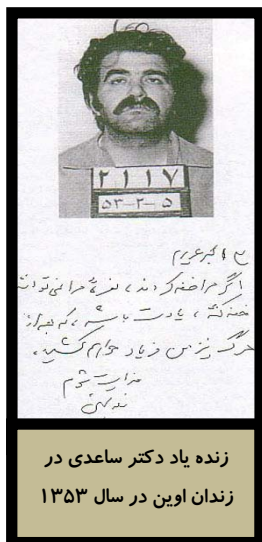 ۲۱۱۷
۵۳-۲-۵
عزیزم
اگر مرا خفه کردند، نعرهٔ مرا نمی‌توانند
خفه کنند، یادت باشد، که بعد از
مرگ نیز من فریاد خواهم کشید.
فدایت شوم
زنده یاد دکتر ساعدی در
زندان اوین در سال ۱۳۵۳